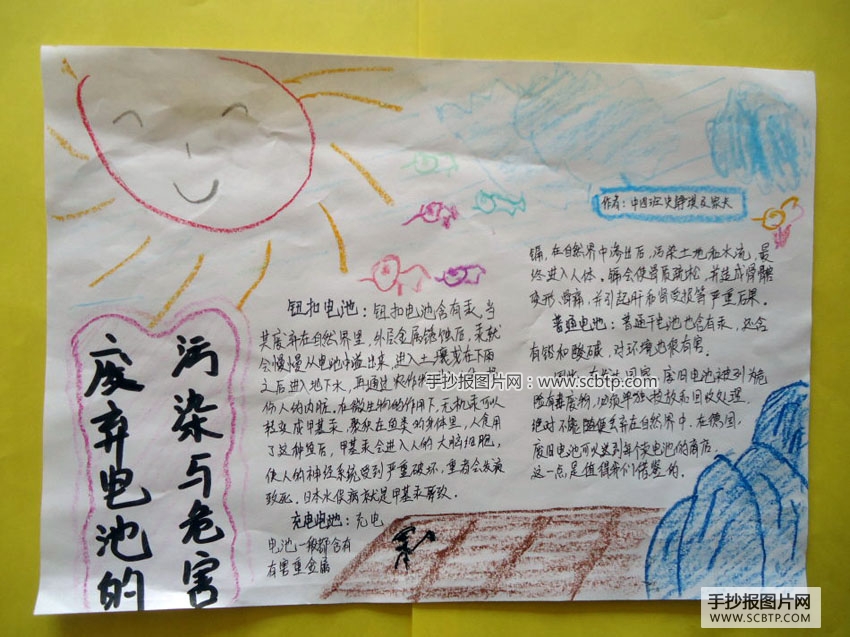 废弃电池的
污染与危害
作者：中四班史静琪及家长
钮扣电池：钮扣电池含有汞。当
其废弃在自然界里，外层金属锈蚀后，汞就
会慢慢从电池中溢出来，进入土壤或在下雨
之后进入地下水，再通过农作物
手抄报图片网：www.scbtp.com
伤人的内脏。在微生物的作用下，无机汞可以
转变成甲基汞，聚积在鱼类的身体里，人食用
了这种鱼后，甲基汞会进入人的大脑细胞，
使人的神经系统受到严重破坏，重者会发疯
致死。日本水俣病就是甲基汞所致。
充电电池：充电
电池一般都含有
有害重金属
镉，在自然界中渗出后，污染土地和水流，最
终进入人体。镉会使骨质疏松，并造成骨骼
变形、骨痛，并引起肝和肾受损等严重后果。
普通电池：普通干电池也含有汞，还含
有铅和酸碱，对环境也很有害。
因此，在发达国家，废旧电池被列为危
险有害废物，必须单独投放和回收处理，
绝对不能随便丢弃在自然界中。在德国，
废旧电池可以送到每个卖电池的商店。
这一点是值得我们借鉴的。
手抄报图片网
WWW.SCBTP.COM